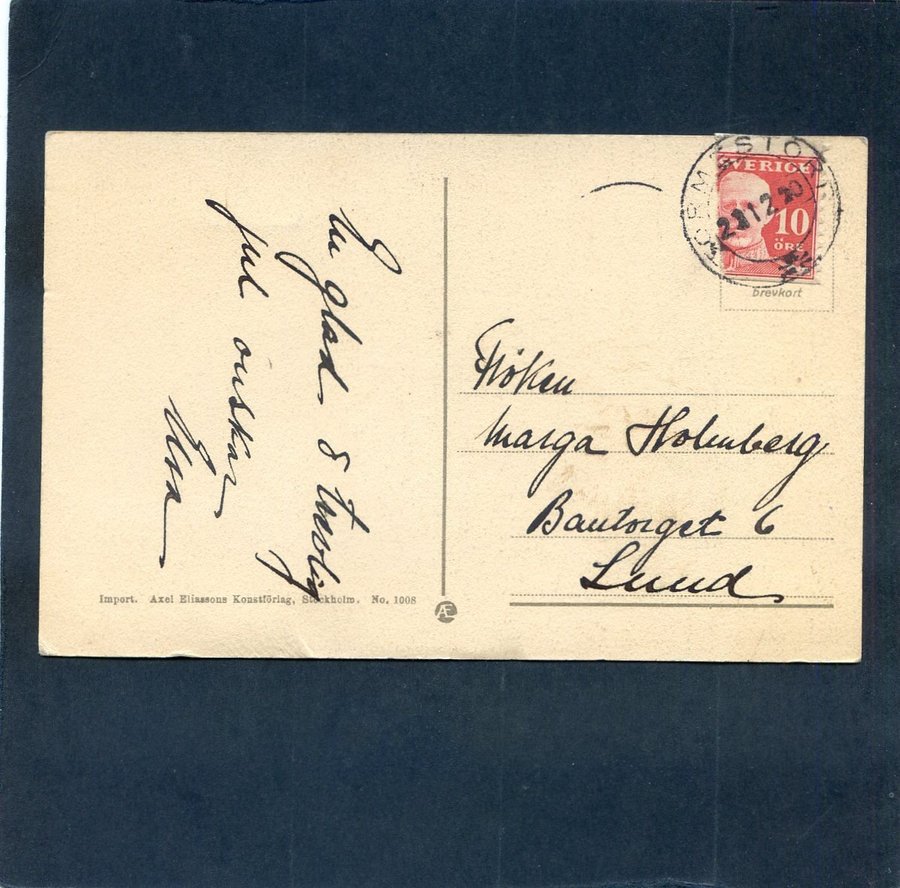 En glad & trevlig
jul önskar
Elsa
Import. Axel Eliassons Konstförlag, Stockholm. No. 1008
Æ
SVERIGE
10
ÖRE
brevkort
Fröken
Marga Holmberg
Bantorget 6
Lund